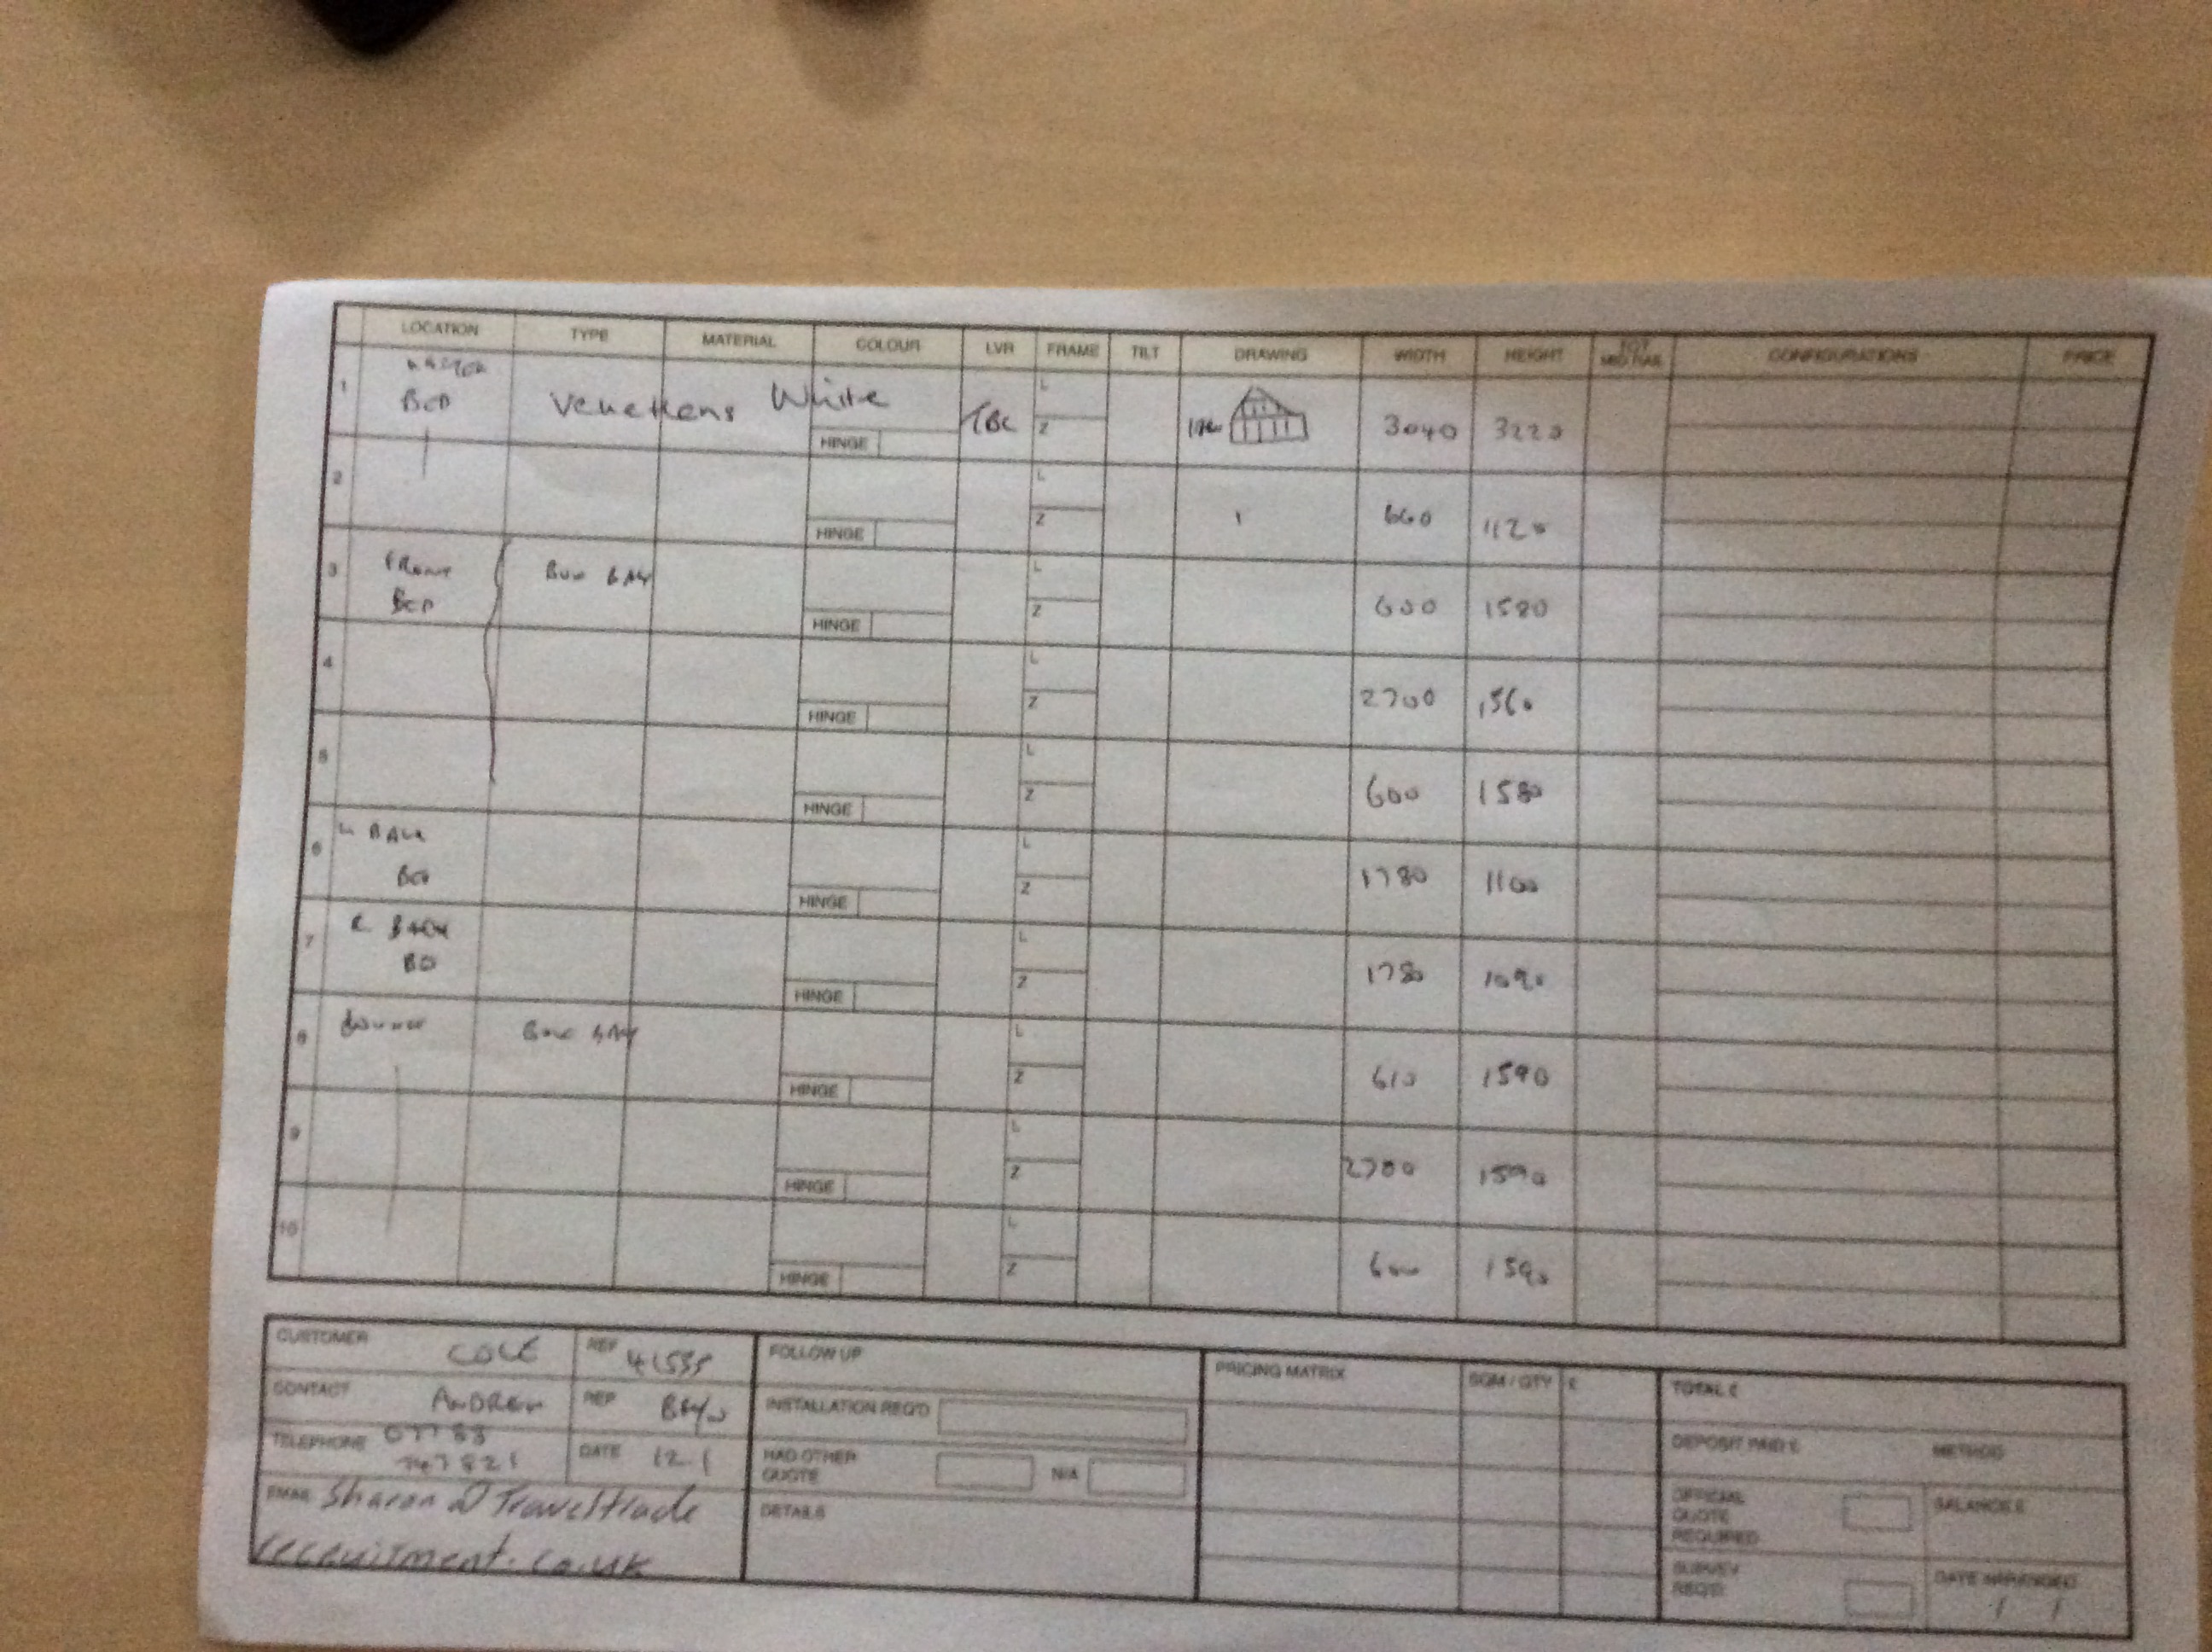 LOCATION TYPE MATERIAL COLOUR LVR FRAME TILT DRAWING WIDTH HEIGHT CONFIGURATIONS PRICE
1 MASTER BED Venetians White HINGE TBC L Z 3040 3220
2 HINGE L Z 1 660 1120
3 FRONT BED BOW BAY HINGE L Z 600 1580
4 HINGE L Z 2700 1560
5 HINGE L Z 600 1580
6 L BACK BED HINGE L Z 1780 1100
7 R BACK BD HINGE L Z 1780 1090
8 Lounge BOW BAY HINGE L Z 610 1590
9 HINGE L Z 2700 1590
10 HINGE L Z 600 1590
CUSTOMER COLE REF 41535
CONTACT ANDREW REP
TELEPHONE DATE 12.1
EMAIL Sharon @ Traveltrade
recruitment.co.uk
FOLLOW UP
INSTALLATION REQ'D
HAD OTHER
QUOTE N/A
DETAILS
PRICING MATRIX SQM / QTY £
TOTAL £
DEPOSIT PAID £ METHOD
OFFICIAL
QUOTE
REQUIRED
BALANCE £
SURVEY
REQ'D
DATE ARRANGED
/ /